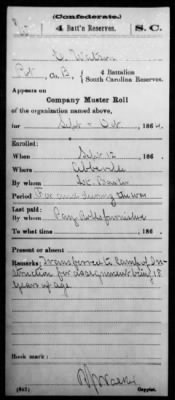 (Confederate.)
4 Batt'n Reserves. S. C.
Pvt, Co. B, 4 Battalion
South Carolina Reserves.
Appears on
Company Muster Roll
of the organization named above,
for Sept & Oct, 1864.
Enrolled:
When Sept 12, 186
Where Abbeville
By whom
Period For and during the war
Last paid:
By whom Pay Rolls
To what time , 186 .
Present or absent
Remarks: Transferred to Camp of In-
struction for assignment being 18
Years of age
Book mark:
(642) Copyist.